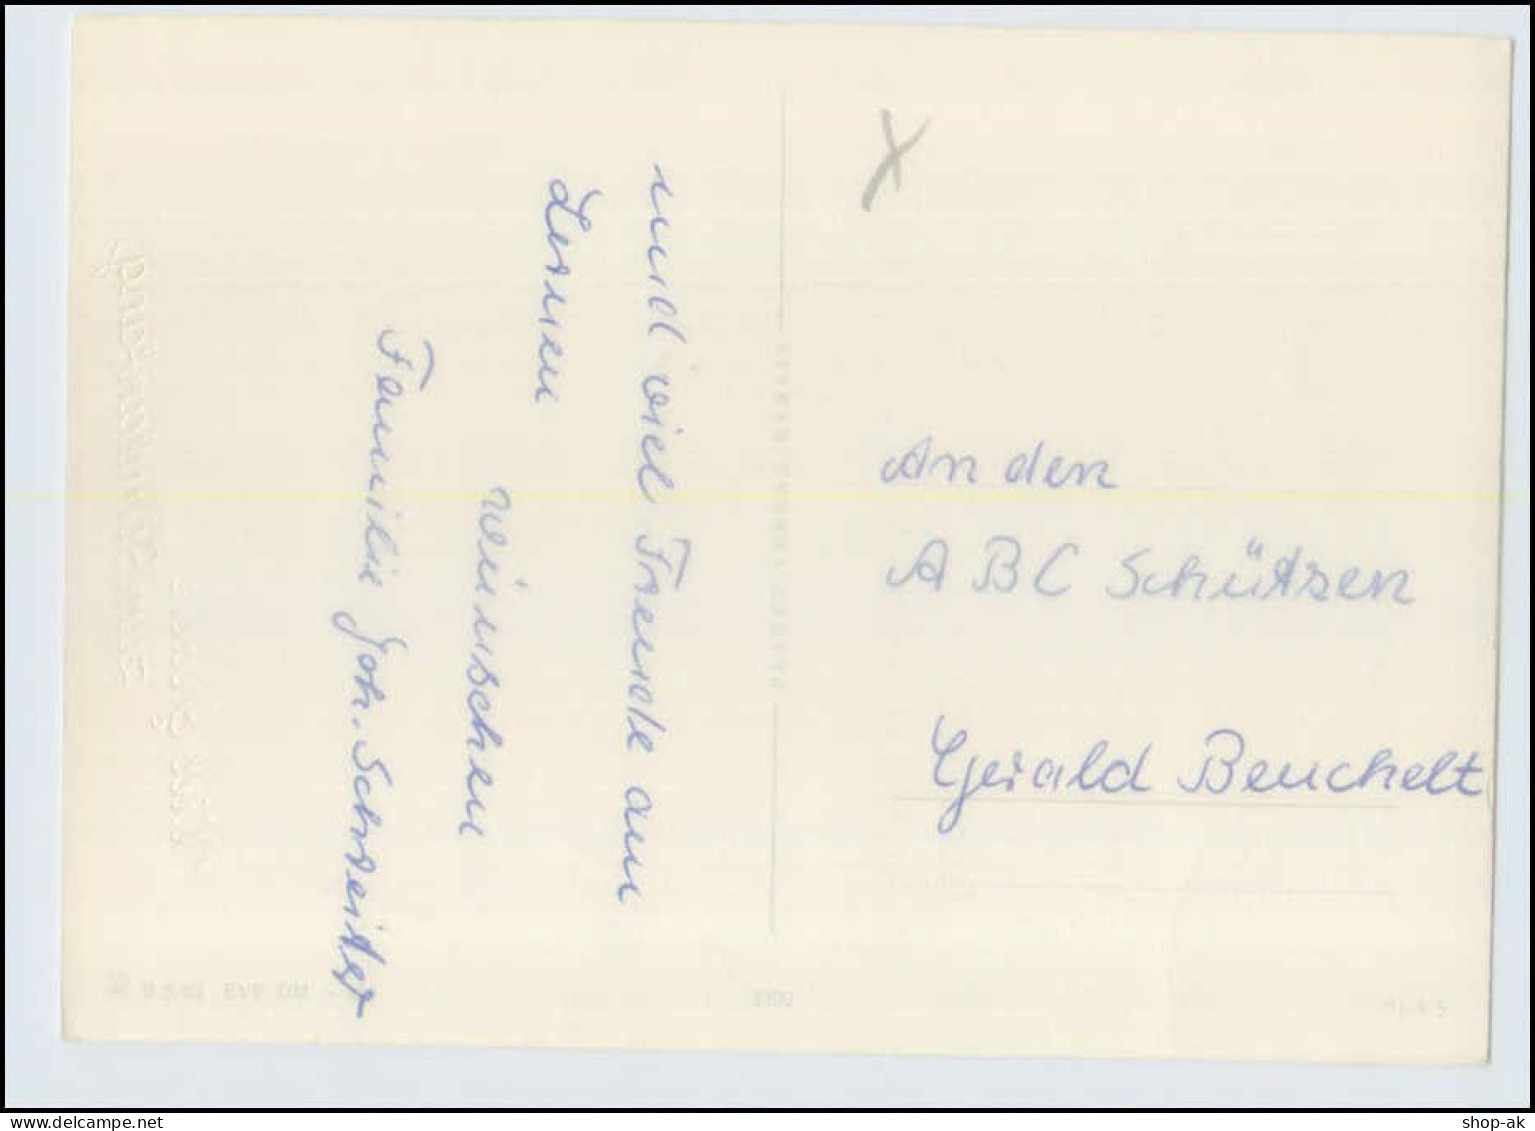 und viel Freude am
Lernen
wünschen
Familie Joh. Schreiter
An den
ABC Schützen
Gerald Beuchelt
EVP DM
www.delcampe.net
shop-ak